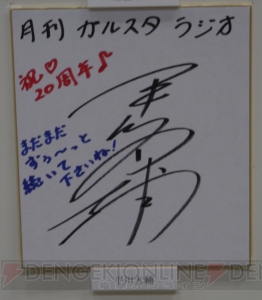 月刊 ガルスタ ラジオ
祝♡
20周年♪
まだまだ
ずぅ〜っと
続いて
下さいね!
DENGEKIONLINE